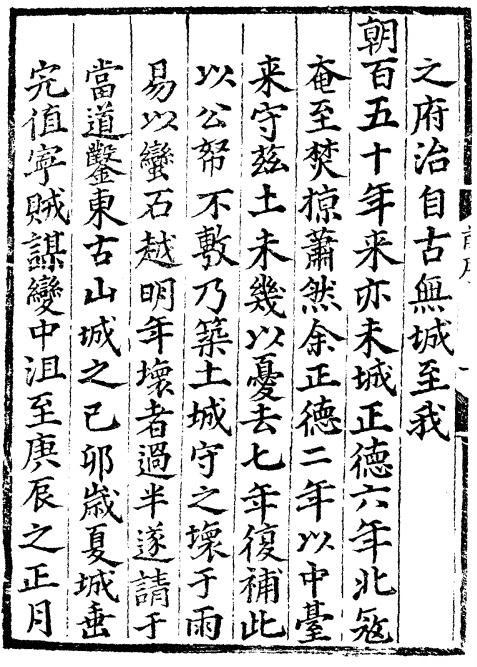 之府治自古無城至我
朝百五十年来亦未城正德六年北𡨥
奄至焚掠蕭然余正德二年以中臺
来守茲土未幾以憂去七年復補此
以公帑不敷乃築土城守之壞于雨
易以蠻石越明年壞者過半遂請于
當道鑿東古山城之己卯歲夏城垂
完值寧賊謀變中沮至庚辰之正月